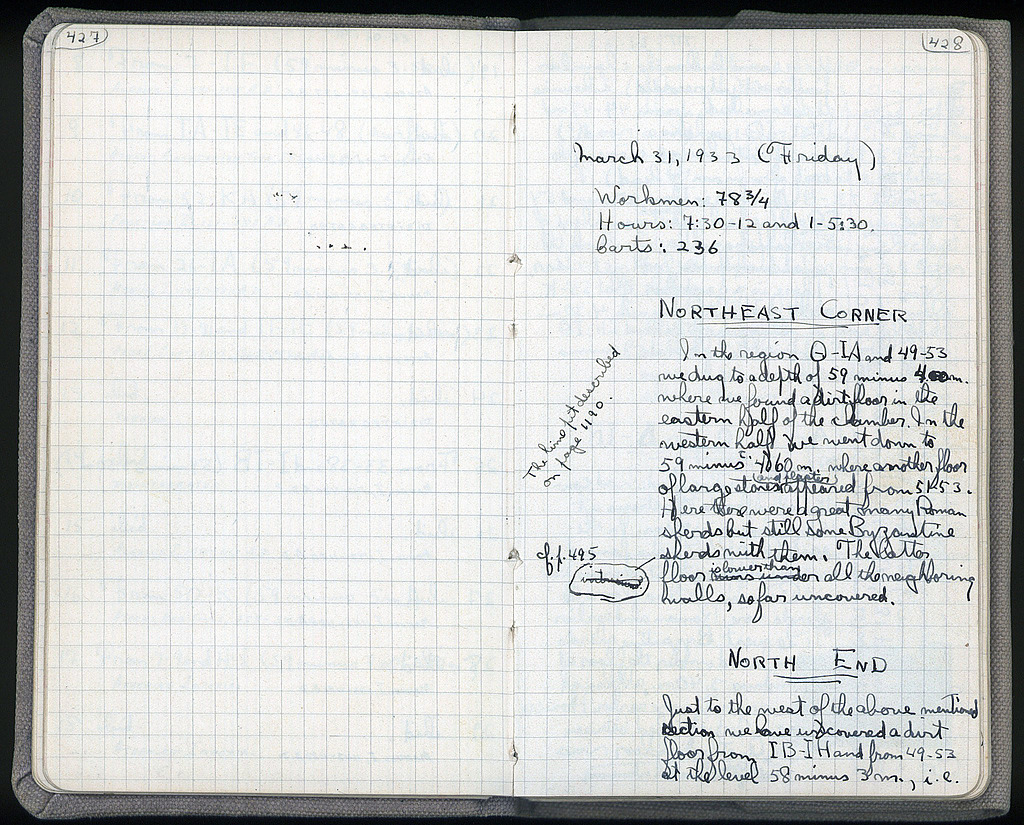 427
428
March 31, 1933 (Friday)
Workmen: 78 3/4
Hours: 7:30-12 and 1-5:30.
Carts: 236
NORTHEAST CORNER
In the region Θ-IA and 49-53
we dug to a depth of 59 minus m.
where we found a dirt floor in the
eastern half of the chamber. In the
western half we went down to
59 minus 4.60 m. where another floor
of large stones (and plaster) appeared from 51-53.
Here there were a great many Roman
sherds but still some Byzantine
sherds with them. The latter
floor is lower than all the neighboring
walls, so far uncovered.
The lime pit described
on page 490.
cf. p. 495
NORTH END
Just to the west of the above mentioned
section we have uncovered a dirt
floor from IB-IH and from 49-53
at the level 58 minus 3 m., i.e.